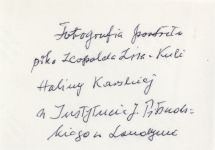 Fotografia portretu
płka Leopolda Lisa-Kuli
Haliny Karskiej
w Instytucie J. Piłsud-
skiego w Londynie